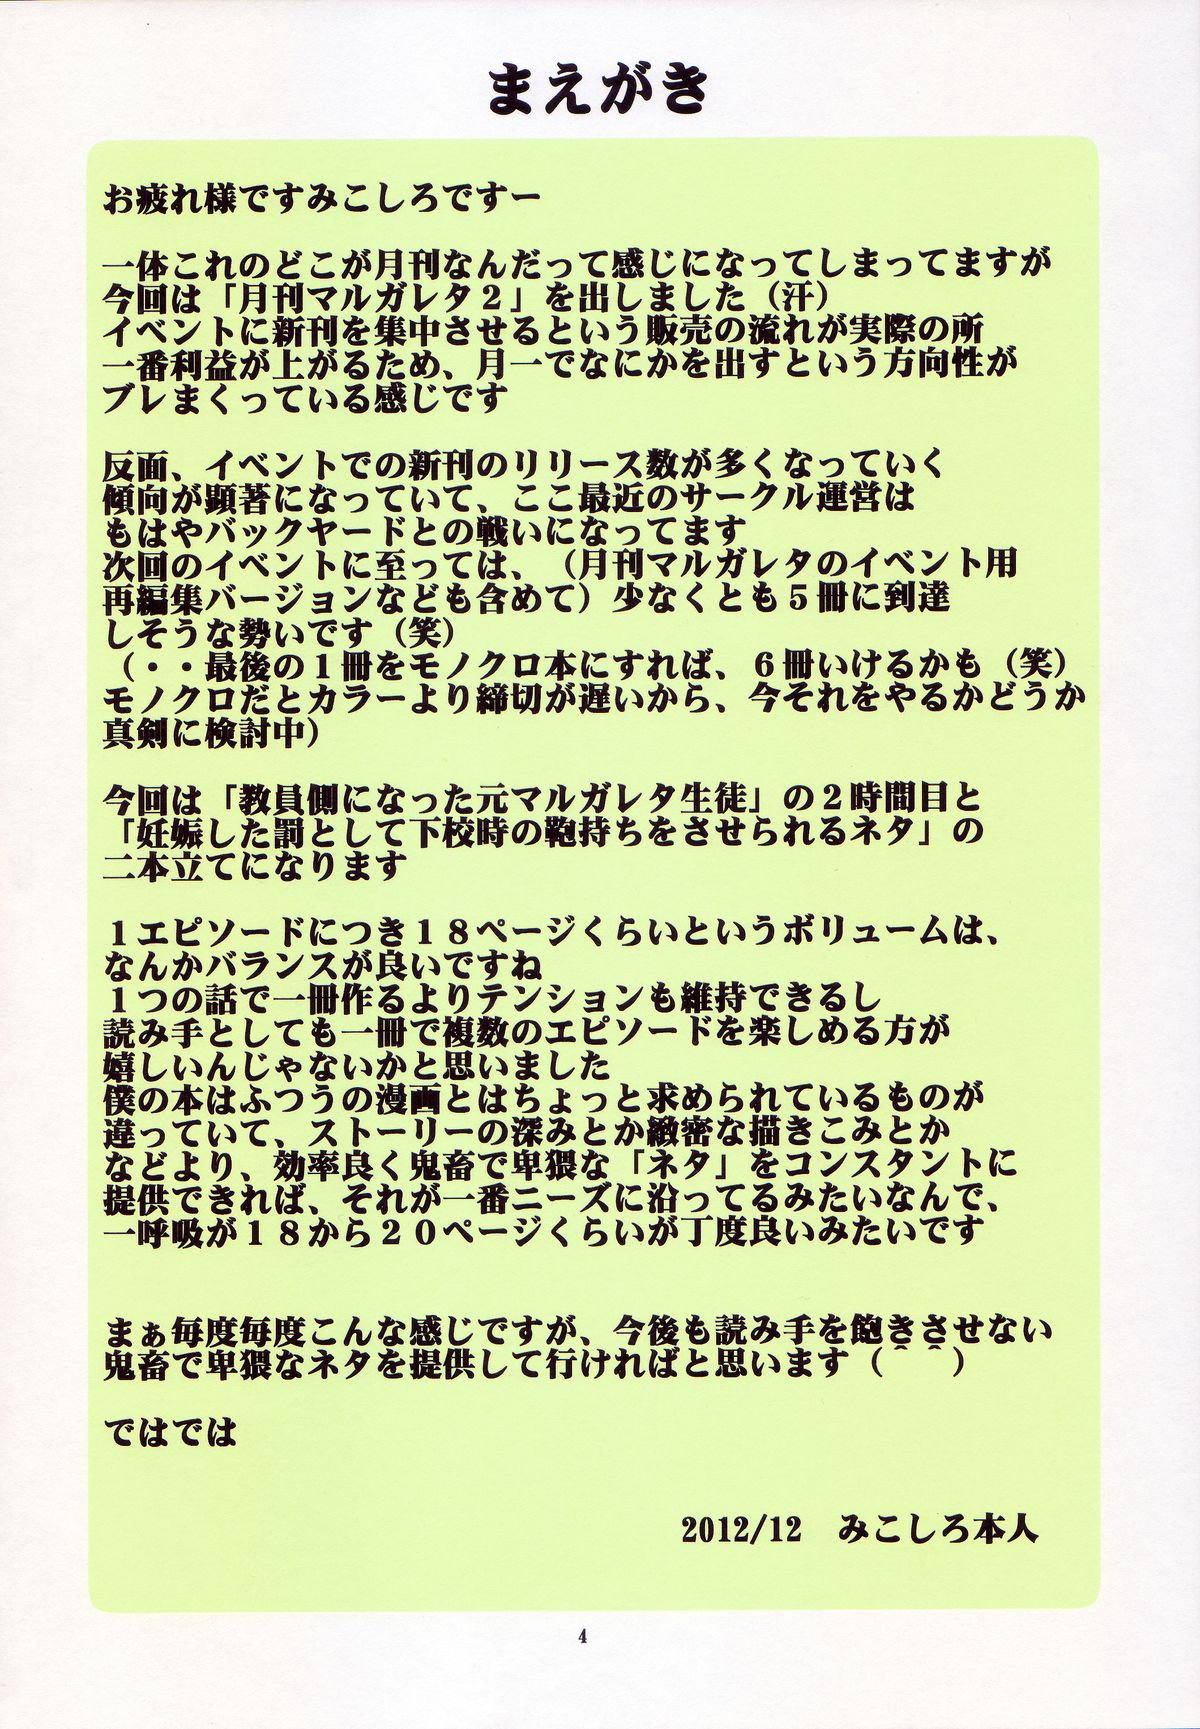 まえがき
お疲れ様ですみこしろですー
一体これのどこが月刊なんだって感じになってしまってますが
今回は「月刊マルガレタ２」を出しました（汗）
イベントに新刊を集中させるという販売の流れが実際の所
一番利益が上がるため、月一でなにかを出すという方向性が
ブレまくっている感じです
反面、イベントでの新刊のリリース数が多くなっていく
傾向が顕著になっていて、ここ最近のサークル運営は
もはやバックヤードとの戦いになってます
次回のイベントに至っては、（月刊マルガレタのイベント用
再編集バージョンなども含めて）少なくとも５冊に到達
しそうな勢いです（笑）
（・・最後の１冊をモノクロ本にすれば、６冊いけるかも（笑）
モノクロだとカラーより締切が遅いから、今それをやるかどうか
真剣に検討中）
今回は「教員側になった元マルガレタ生徒」の２時間目と
「妊娠した罰として下校時の鞄持ちをさせられるネタ」の
二本立てになります
１エピソードにつき１８ページくらいというボリュームは、
なんかバランスが良いですね
１つの話で一冊作るよりテンションも維持できるし
読み手としても一冊で複数のエピソードを楽しめる方が
嬉しいんじゃないかと思いました
僕の本はふつうの漫画とはちょっと求められているものが
違っていて、ストーリーの深みとか緻密な描きこみとか
などより、効率良く鬼畜で卑猥な「ネタ」をコンスタントに
提供できれば、それが一番ニーズに沿ってるみたいなんで、
一呼吸が１８から２０ページくらいが丁度良いみたいです
まぁ毎度毎度こんな感じですが、今後も読み手を飽きさせない
鬼畜で卑猥なネタを提供して行ければと思います（＾＾）
ではでは
2012/12　みこしろ本人
4